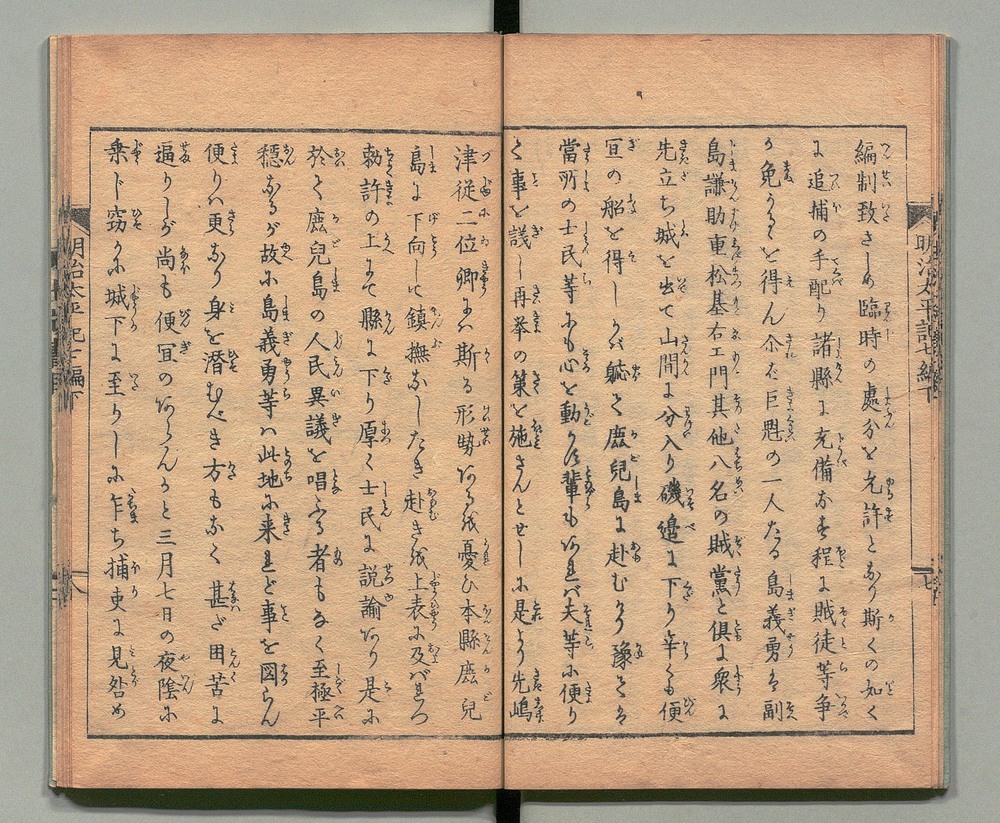 編制致さしめ臨時の處分を允許となり斯くの如く
に追捕の手配り諸縣に充備なす程に賊徒等争
か免るゝを得ん尒れど巨魁の一人たる島義勇は副
島謙助重松基右エ門其他八名の賊黨と倶に衆に
先立ち城を出て山間に分入り磯邉に下り辛くも便
冝の船を得しかば躰て鹿兒島に赴むけり豫ては
當所の士民等にも心を動かす輩もあれば夫等に便り
て事を議し再挙の策を施さんとせしに是より先嶋
津従二位卿には斯る形勢あるを憂ひ本縣鹿兒
島に下向して鎮撫なしたき赴きを上表に及バれつ
勅許の上にて縣に下り厚く士民に説諭あり是に
於て鹿兒島の人民異議を唱ふる者もなく至極平
穏なるが故に島義勇等ハ此地に来れど事を図らん
便りハ更なり身を潜むべき方もなく甚だ困苦に
逼りしが尚も便冝のあらんかと三月七日の夜陰に
乗じ窃かに城下に至りしに乍ち捕吏に見咎め
明治太平記七編下
七
明治太平記七編下
八